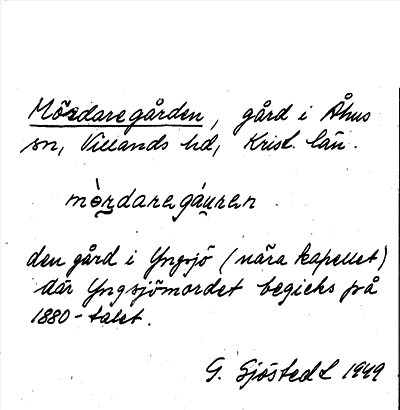 Mördaregården, gård i Åhus
sn, Villands hd, Krist. län.
mö̀r̯daregáu̯ren
den gård i Yngsjö (nära kapellet)
där Yngsjömordet begicks på
1880-talet.
G. Sjöstedt 1949